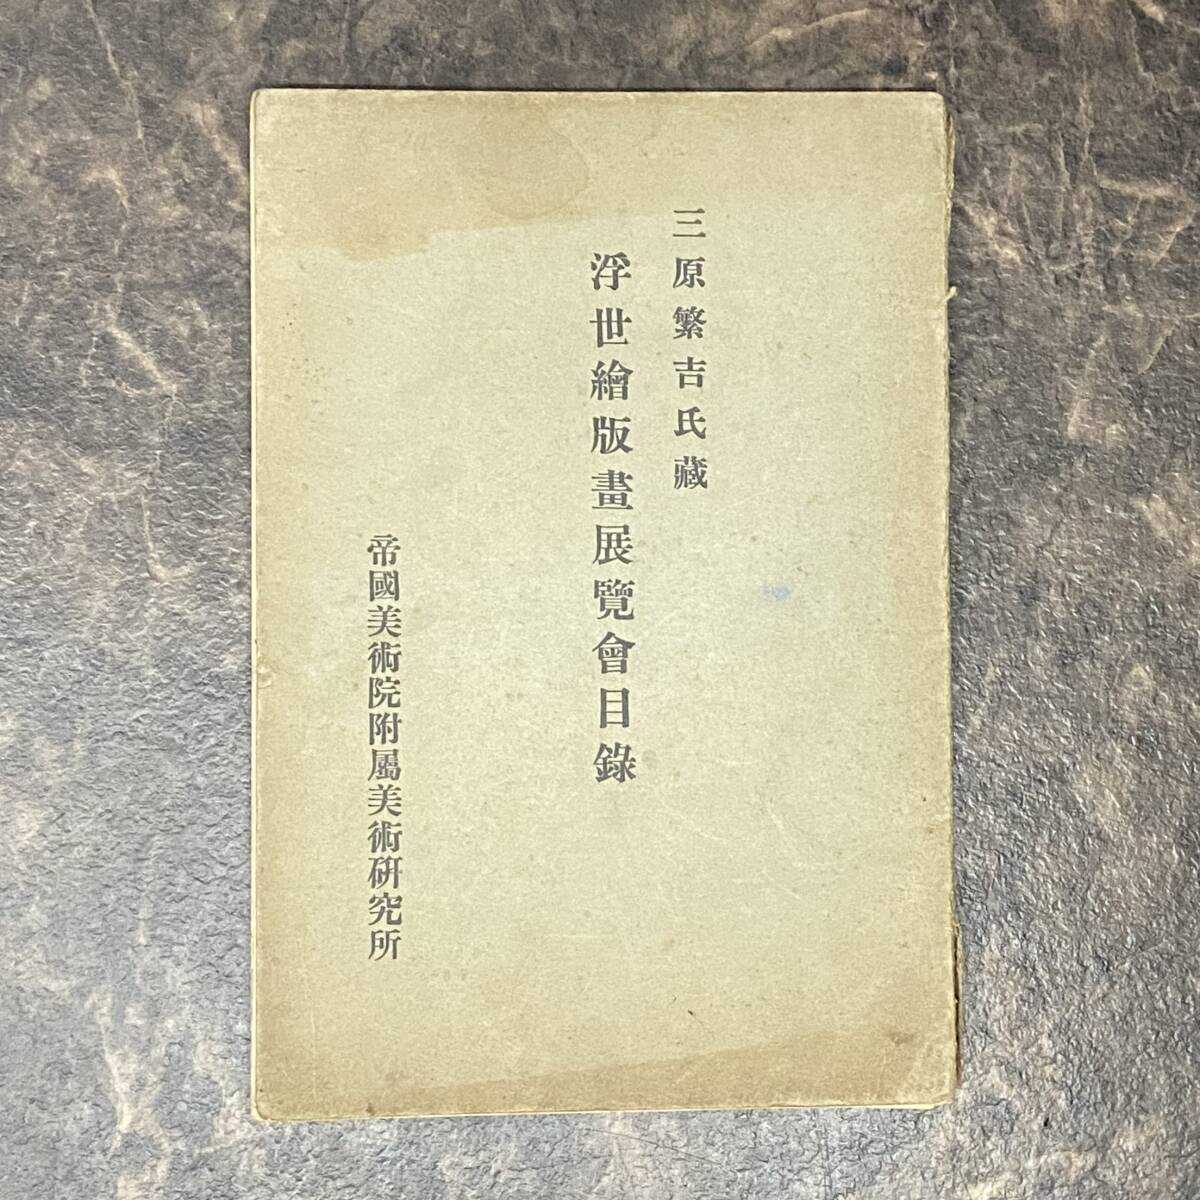 三原繁吉氏藏
浮世繪版畫展覽會目錄
帝國美術院附屬美術研究所